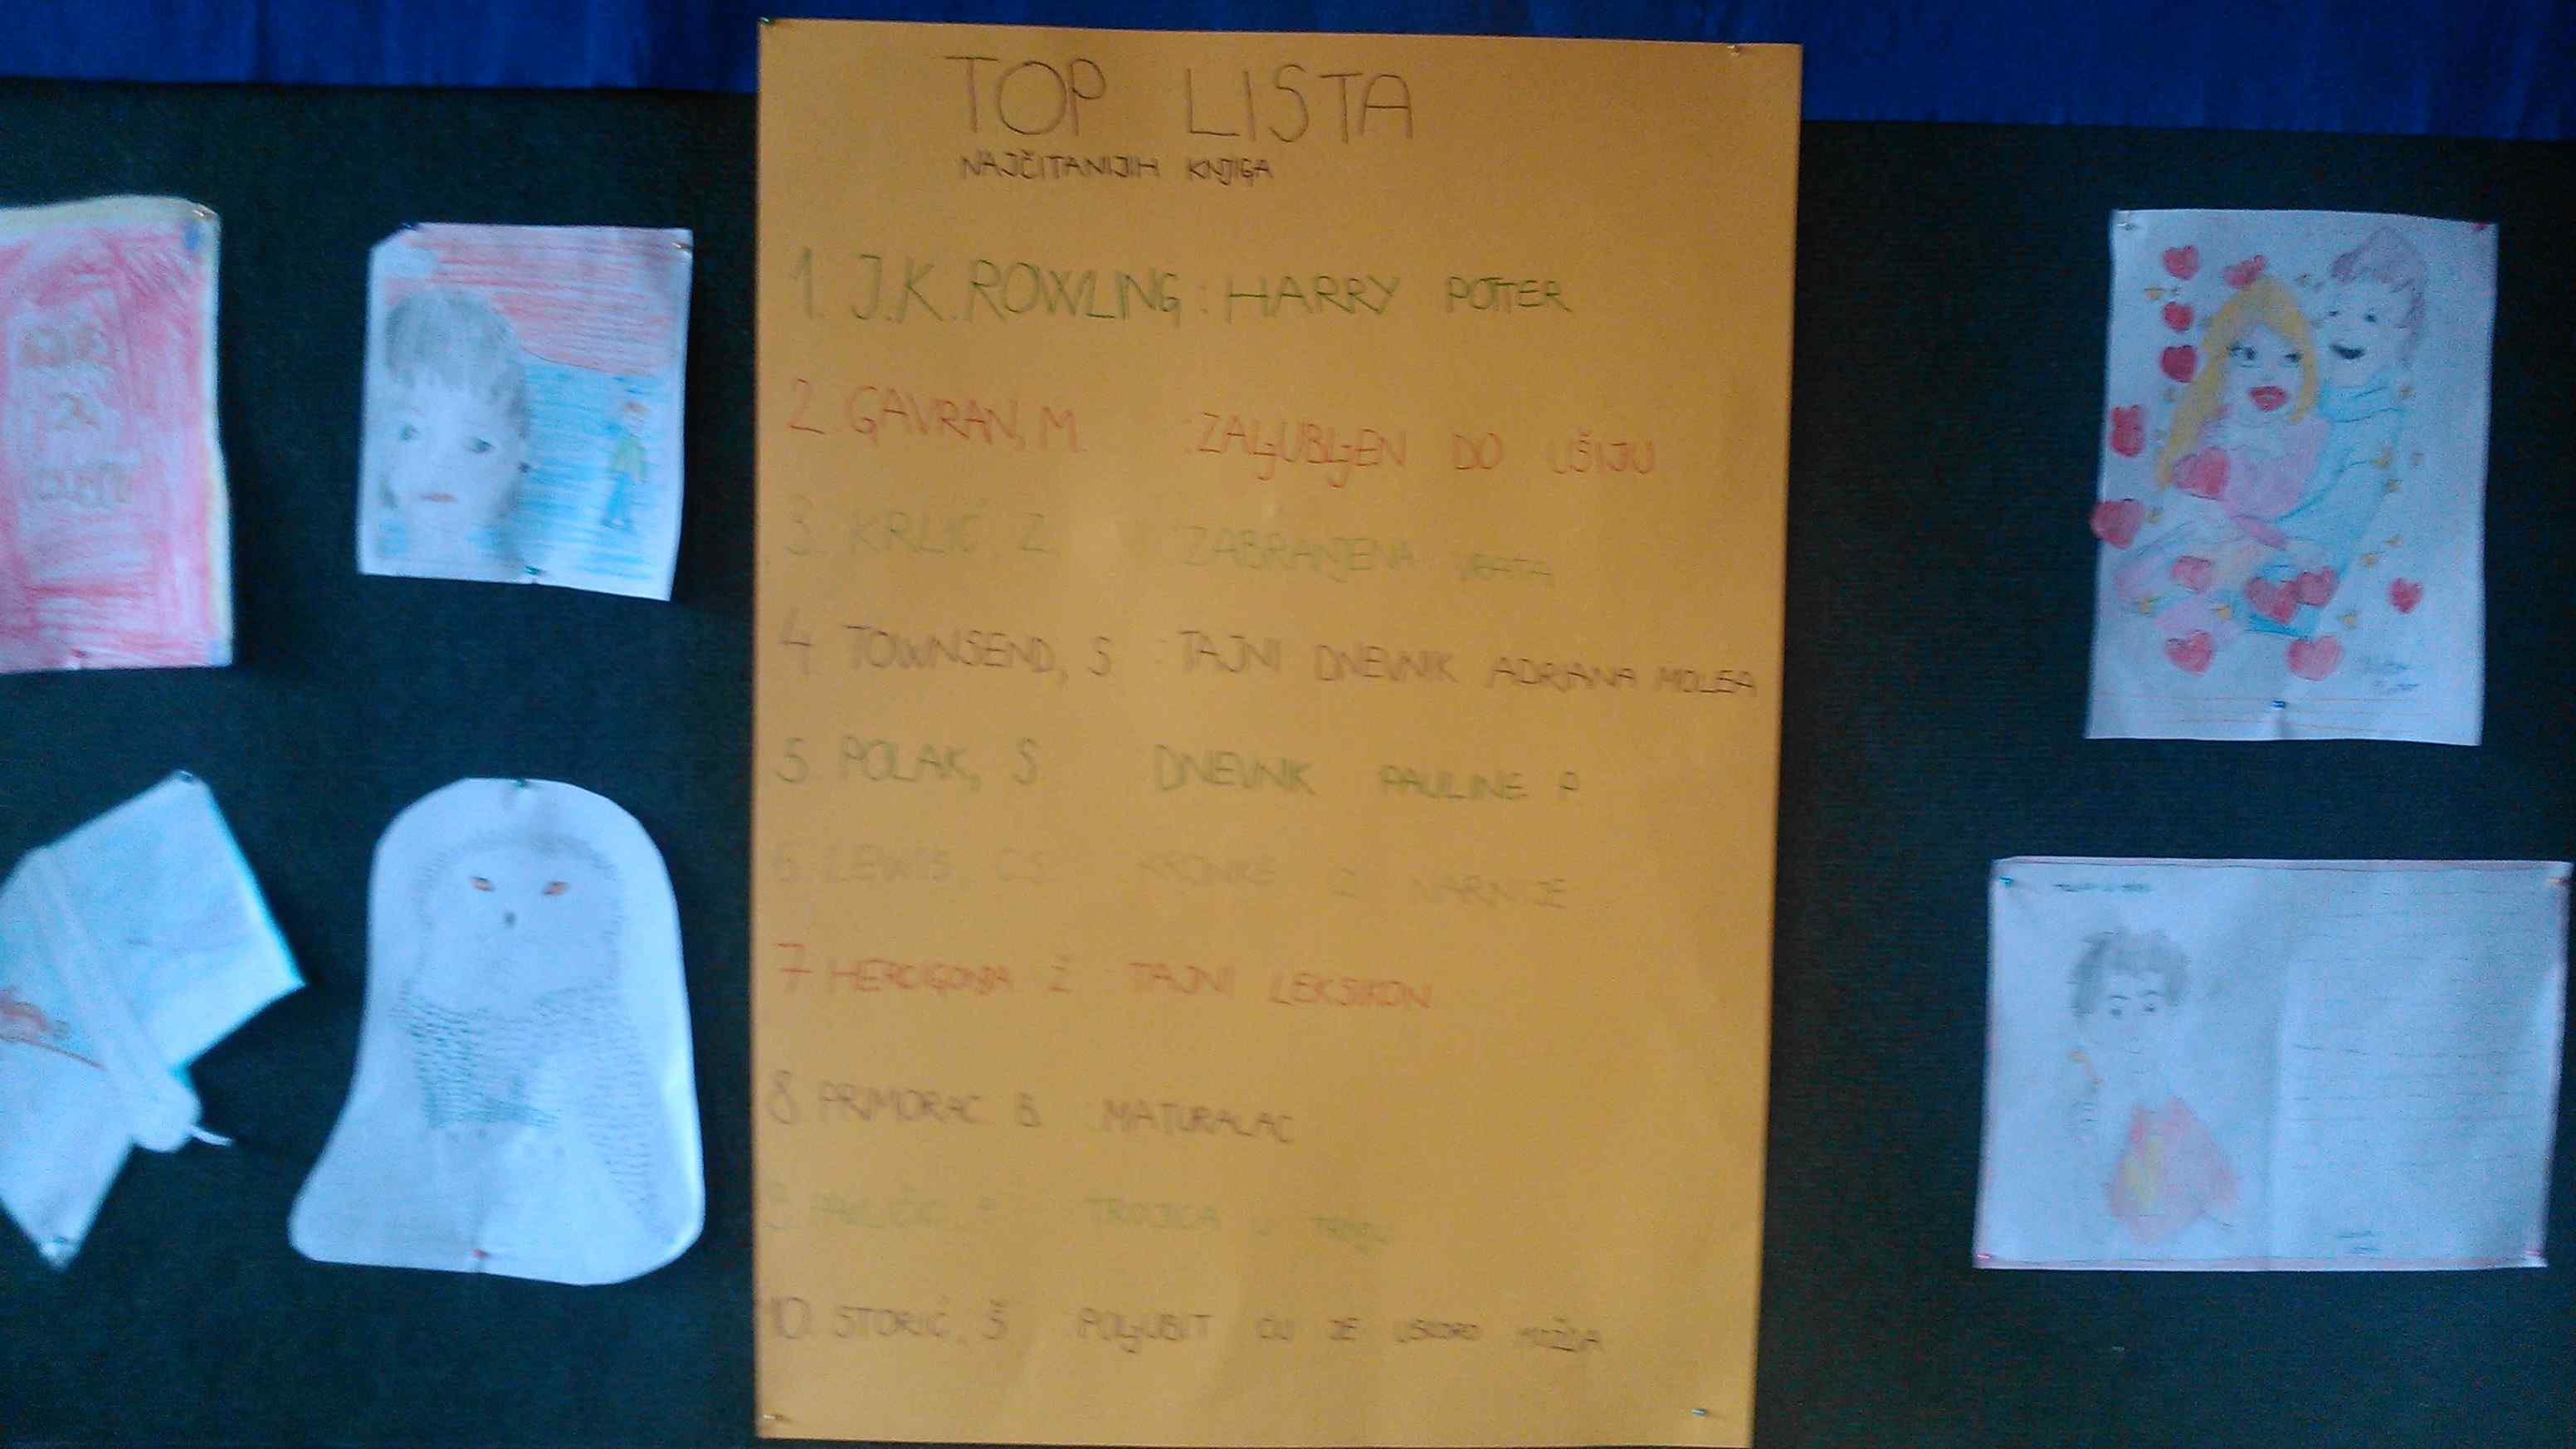 TOP LISTA
NAJČITANIJIH KNJIGA
1. J.K. ROWLING : HARRY POTTER
2. GAVRAN, M. : ZALJUBLJEN DO UŠIJU
3. KRLIĆ, Z. ZABRANJENA VRATA
4. TOWNSEND, S : TAJNI DNEVNIK ADRIANA MOLEA
5 POLAK, S DNEVNIK PAULINE P
6. LEWIS, C.S. KRONIKE IZ NARNIJE
7 HERCIGONJA Ž : TAJNI LEKSIKON
8. PRIMORAC B. : MATURALAC
9. PAVLIČIĆ P : TROJICA U TRNJU
10. STORIĆ, Š. POLJUBIT ĆU JE USKORO MOŽDA